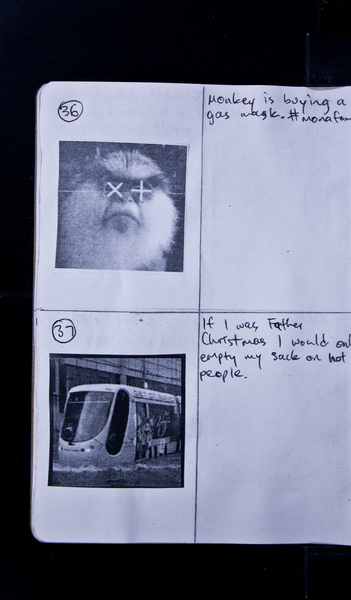 36
Monkey is buying a
gas mask. #monafom
X +
37
If I was Father
Christmas I would onl
empty my sack on hot
people.